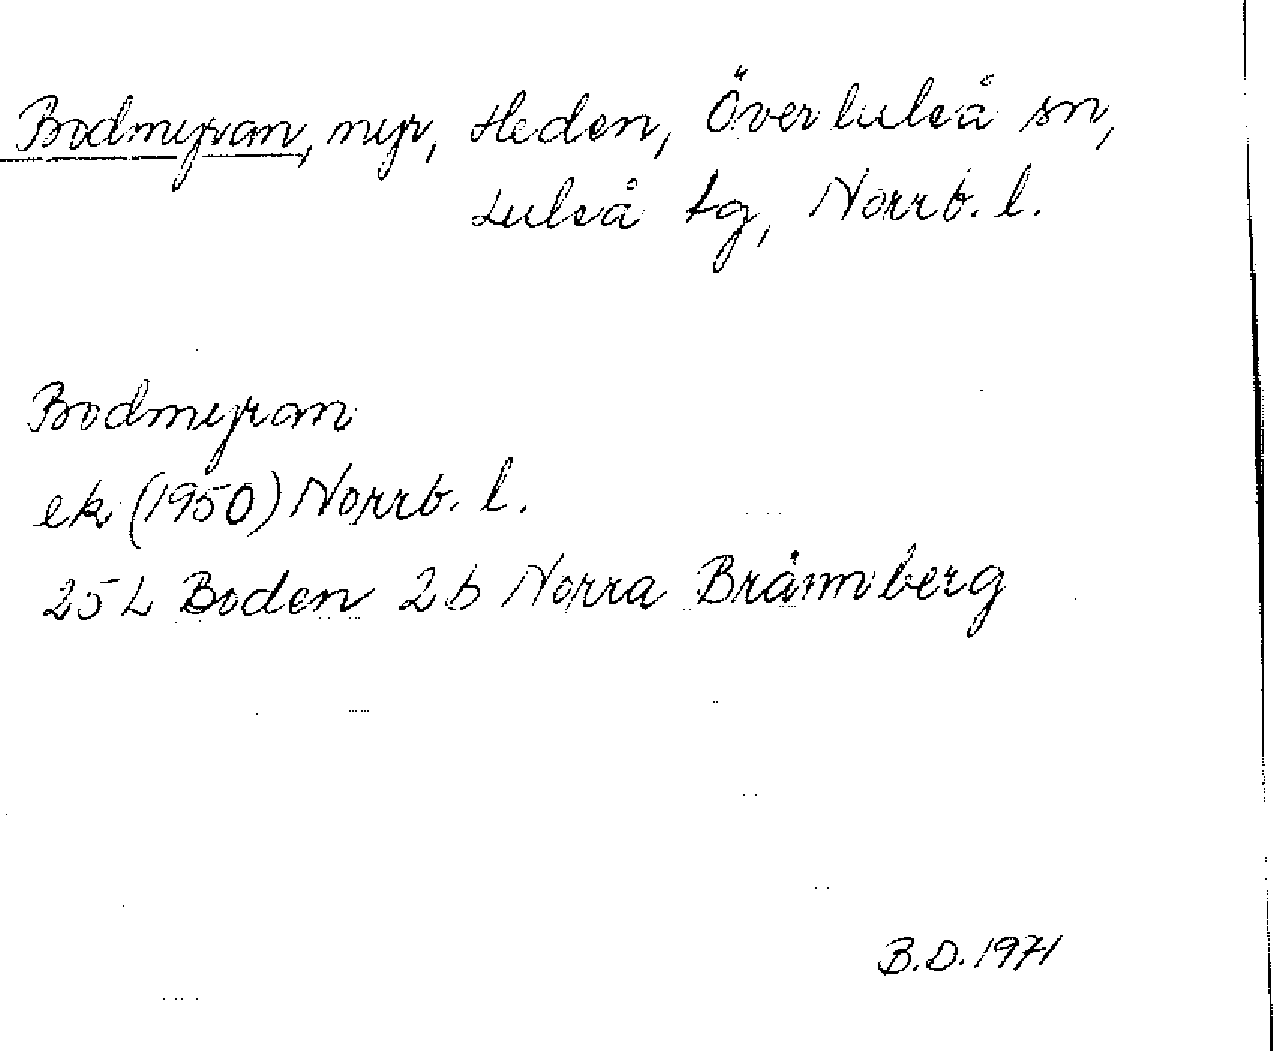 Bodmyran, myr, Heden, Överluleå sn,
Luleå tg, Norrb. l.
Bodmyran
ek (1950) Norrb. l.
25 L Boden 2b Norra Brännberg
B.D. 1971